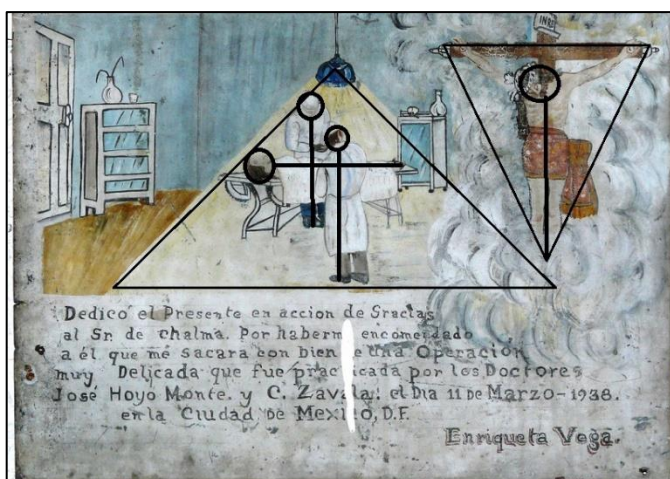 INRI
Dedico el Presente en accion de Sracias
al Sr. de chalma. Por haberm encomendado
a él que me sacara con bien e una Operación
muy Delicada que fue prac icada por los Doctores
José Hoyo Monte. y C. Zavala: el Dia 11 de Marzo-1938.
en la Ciudad de Mexico, D.F.
Enriqueta Vega.